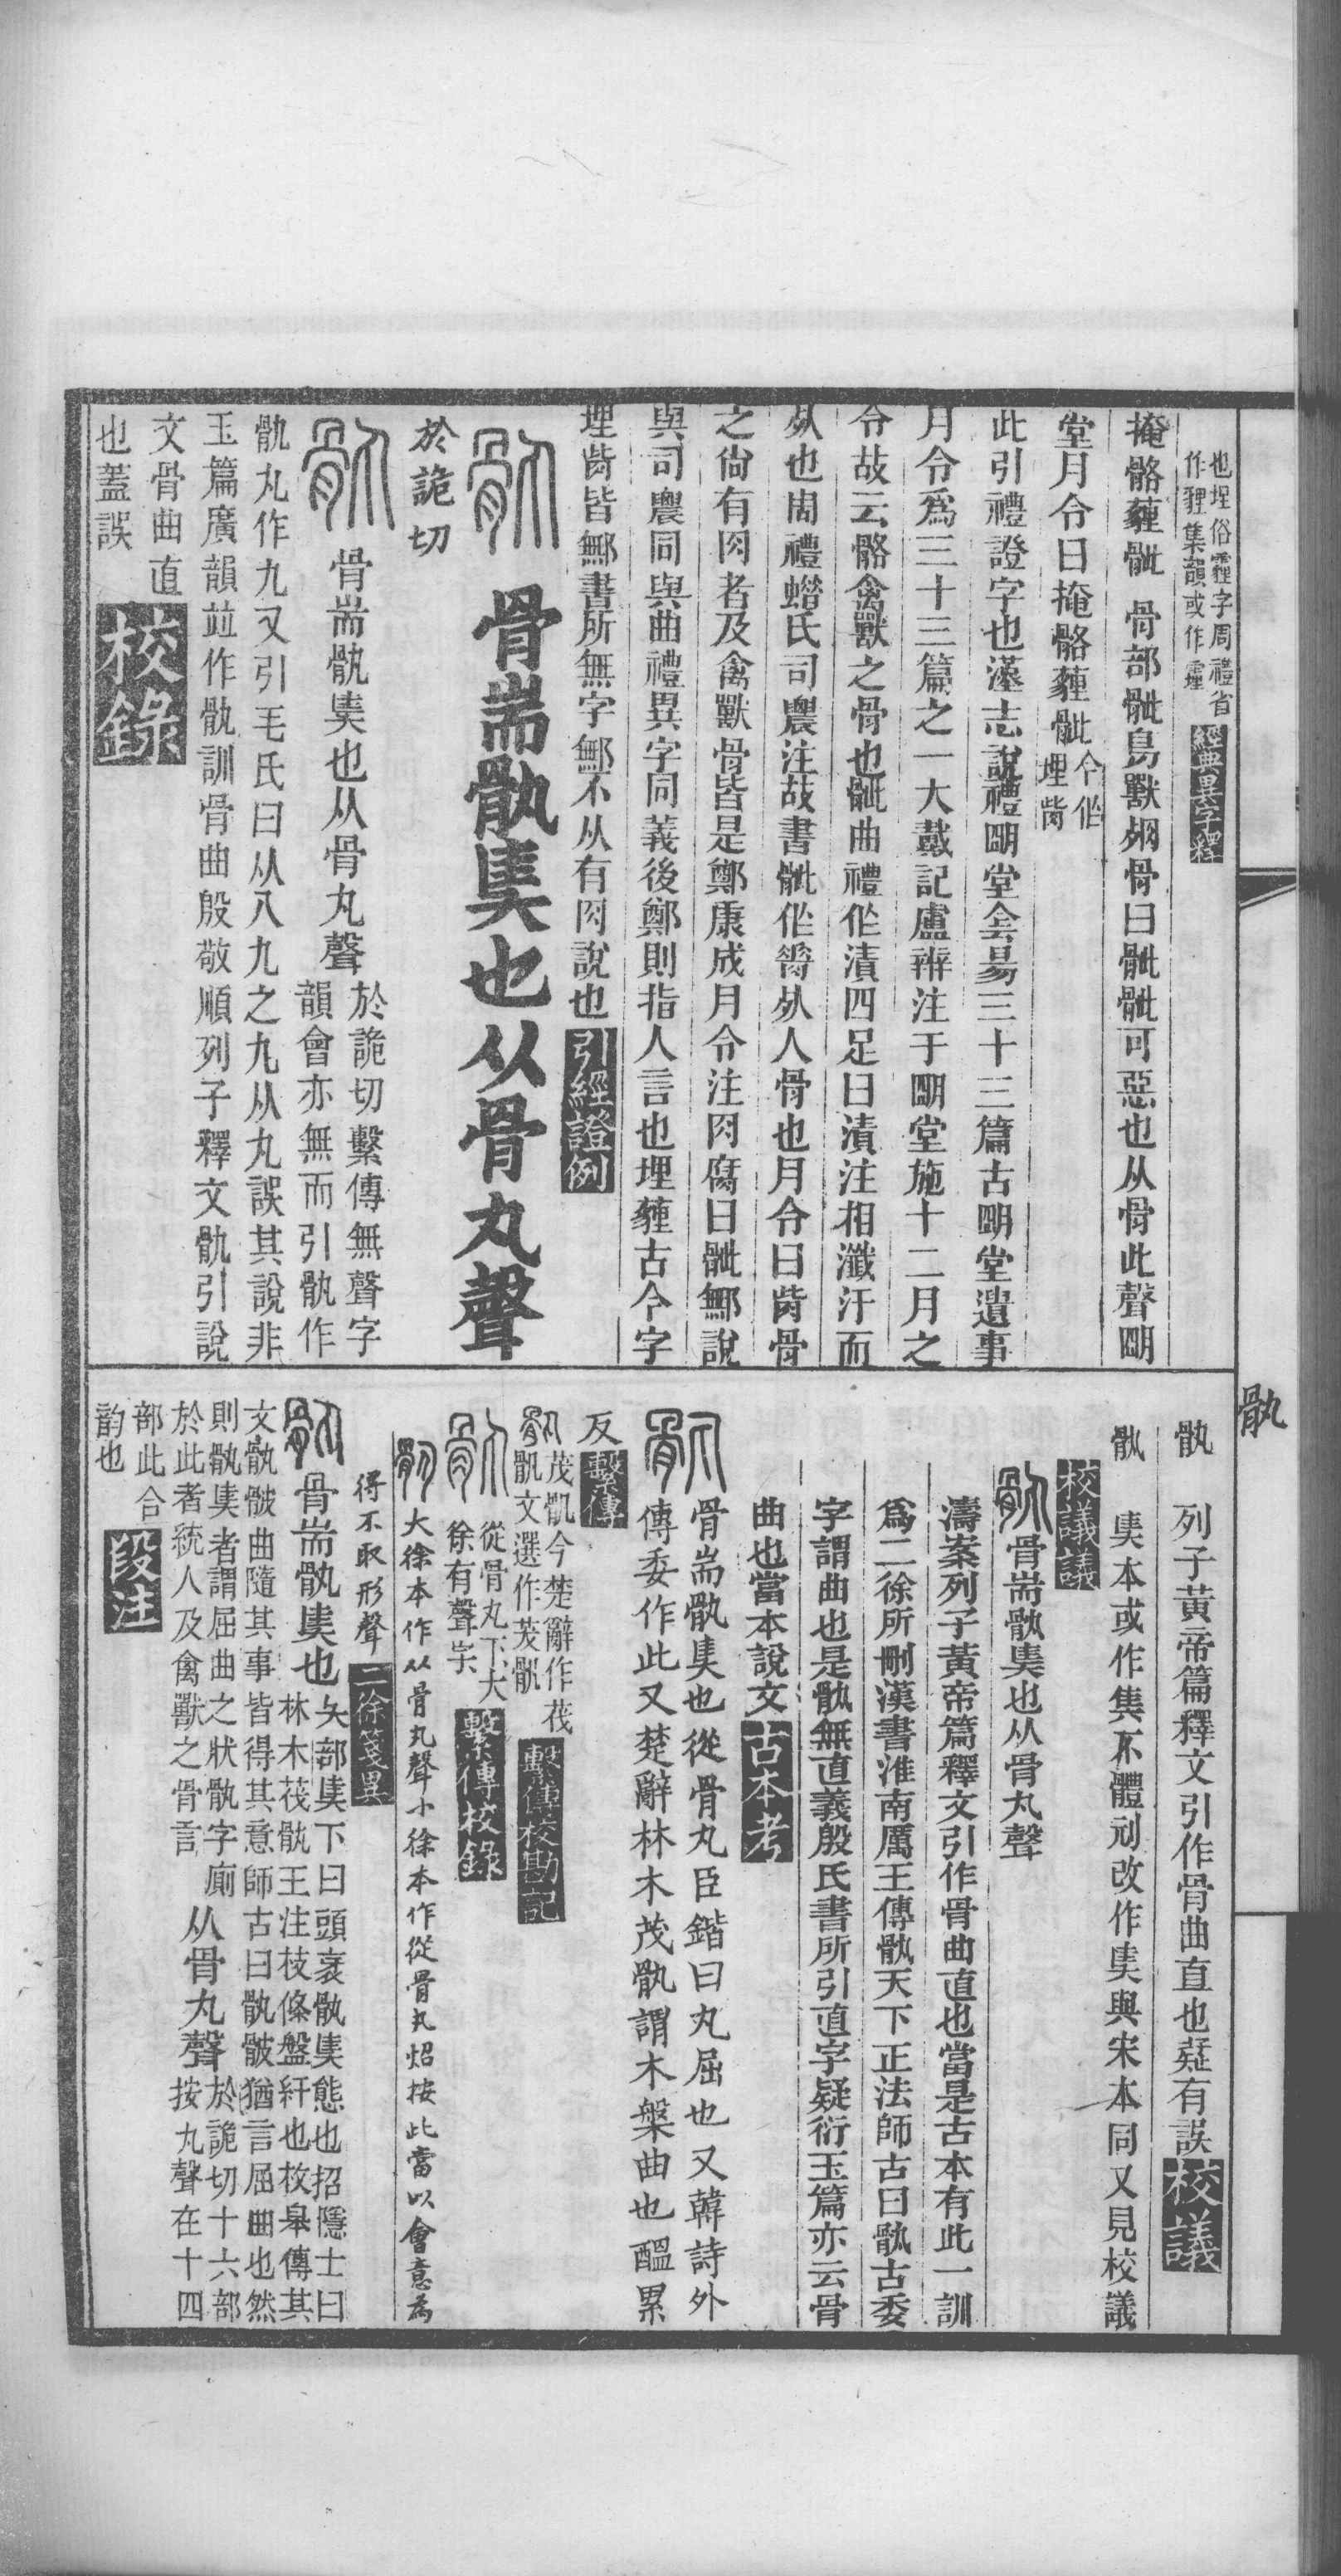 也埋俗霾字周禮省
作貍集韻或作霾
經典異字釋
掩骼薶骴 骨部骴鳥獸殠骨曰骴骴可惡也从骨此聲朙
堂月令曰掩骼薶骴
今作
埋胔
此引禮證字也漢志說禮朙堂会昜三十三篇古朙堂遺事
月令爲三十三篇之一大戴記盧辨注于朙堂施十二月之
令故云骼禽獸之骨也骴曲禮作漬四足曰漬注相瀸汙而
死也周禮蜡氏司農注故書骴作脊死人骨也月令曰胔骨
之尙有肉者及禽獸骨皆是鄭康成月令注肉腐曰骴鄦說
與司農同與曲禮異字同義後鄭則指人言也埋薶古今字
埋胔皆鄦書所無字鄦不从有肉說也
引經證例
骨耑骫奊也从骨丸聲
於詭切
骨耑骫奊也从骨丸聲
於詭切繫傳無聲字
韻會亦無而引骫作
骩丸作九又引毛氏曰从八九之九从丸誤其說非
玉篇廣韻竝作骩訓骨曲殷敬順列子釋文骩引說
文骨曲直
也蓋誤
校錄
骫
骫 列子黃帝篇釋文引作骨曲直也疑有誤
校議
骫 奊本或作集不體刓改作奊與宋本同又見校議
校議議
骨耑骫奊也从骨丸聲
濤案列子黃帝篇釋文引作骨曲直也當是古本有此一訓
爲二徐所刪漢書淮南厲王傳骫天下正法師古曰骫古委
字謂曲也是骫無直義殷氏書所引直字疑衍玉篇亦云骨
曲也當本說文
古本考
骨耑骫奊也從骨丸臣鍇曰丸屈也又韓詩外
傳委作此又楚辭林木茂骫謂木槃曲也醞累
反
繫傳
茂骩今楚辭作茷
骩文選作茇骩
繫傳校勘記
從骨丸下大
徐有聲字
繫傳校錄
大徐本作从骨丸聲小徐本作從骨丸炤按此當以會意爲
得不取形聲
二徐箋異
骨耑骫奊也
夨部奊下曰頭衺骫奊態也招隱士曰
林木茷骫王注枝條盤紆也枚臯傳其
文骫骳曲隨其事皆得其意師古曰骫骳猶言屈曲也然
則骫奊者謂屈曲之狀骫字廁
於此者統人及禽獸之骨言
从骨丸聲
於詭切十六部
按九聲在十四
部此合
韵也
段注